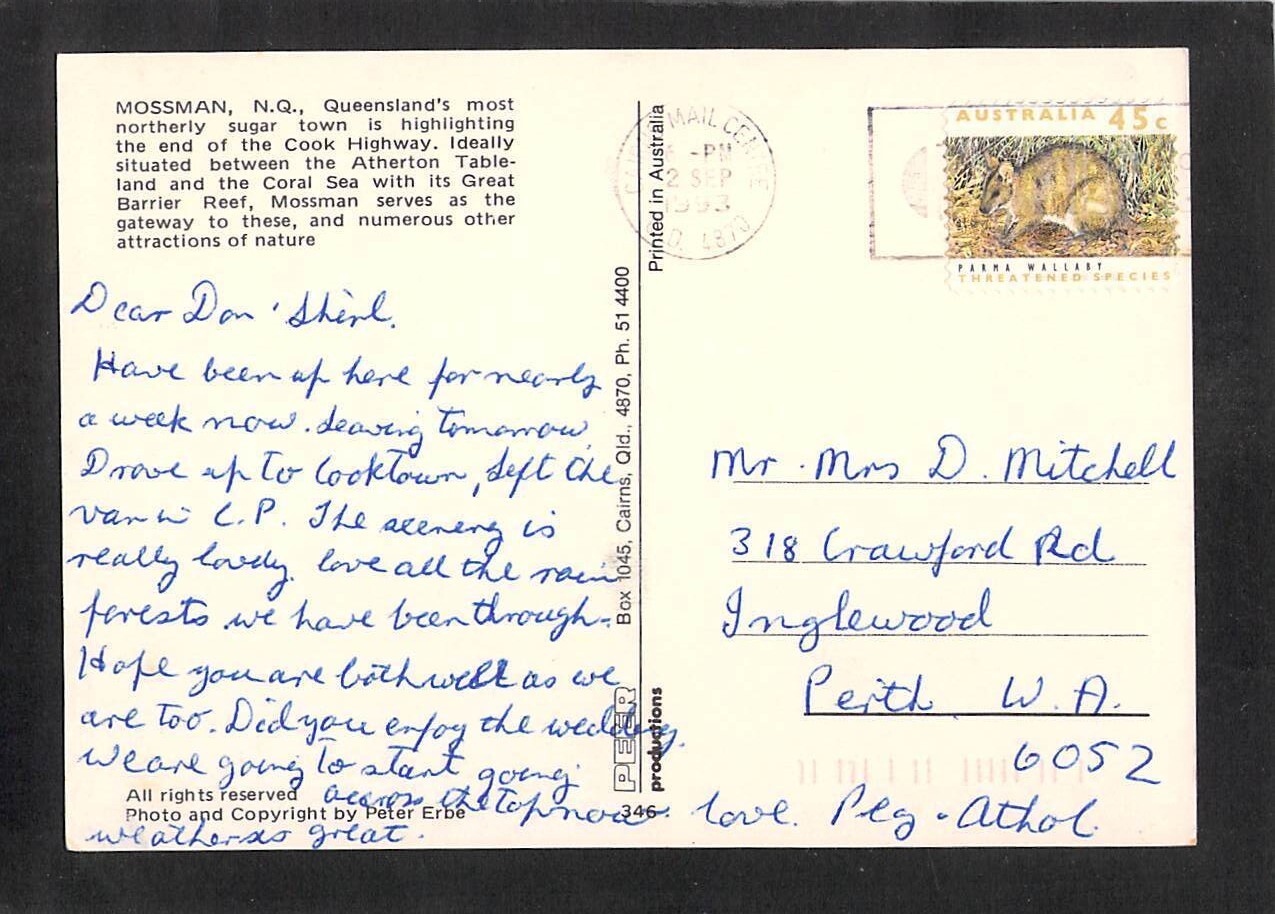 MOSSMAN, N.Q., Queensland's most
northerly sugar town is highlighting
the end of the Cook Highway. Ideally
situated between the Atherton Table-
land and the Coral Sea with its Great
Barrier Reef, Mossman serves as the
gateway to these, and numerous other
attractions of nature
Dear Don ' Shirl.
Have been up here for nearly
a week now. Leaving tomorrow.
Drove up to Cooktown, Left the
van in C.P. The scenery is
really lovely. love all the rain
forests we have been through.
Hope you are both well as we
are too. Did you enjoy the wedding.
We are going to start going
accross the top now
weather is great.
love. Peg . Athol.
All rights reserved
Photo and Copyright by Peter Erbe
346
PEER
productions
Box 1045, Cairns, Qld., 4870, Ph. 51 4400
Printed in Australia
MAIL CENTRE
-PM
2 SEP
1993
4870
AUSTRALIA 45c
PARMA WALLABY
THREATENED SPECIES
Mr . Mrs D. Mitchell
318 Crawford Rd
Inglewood
Perth W.A.
6052